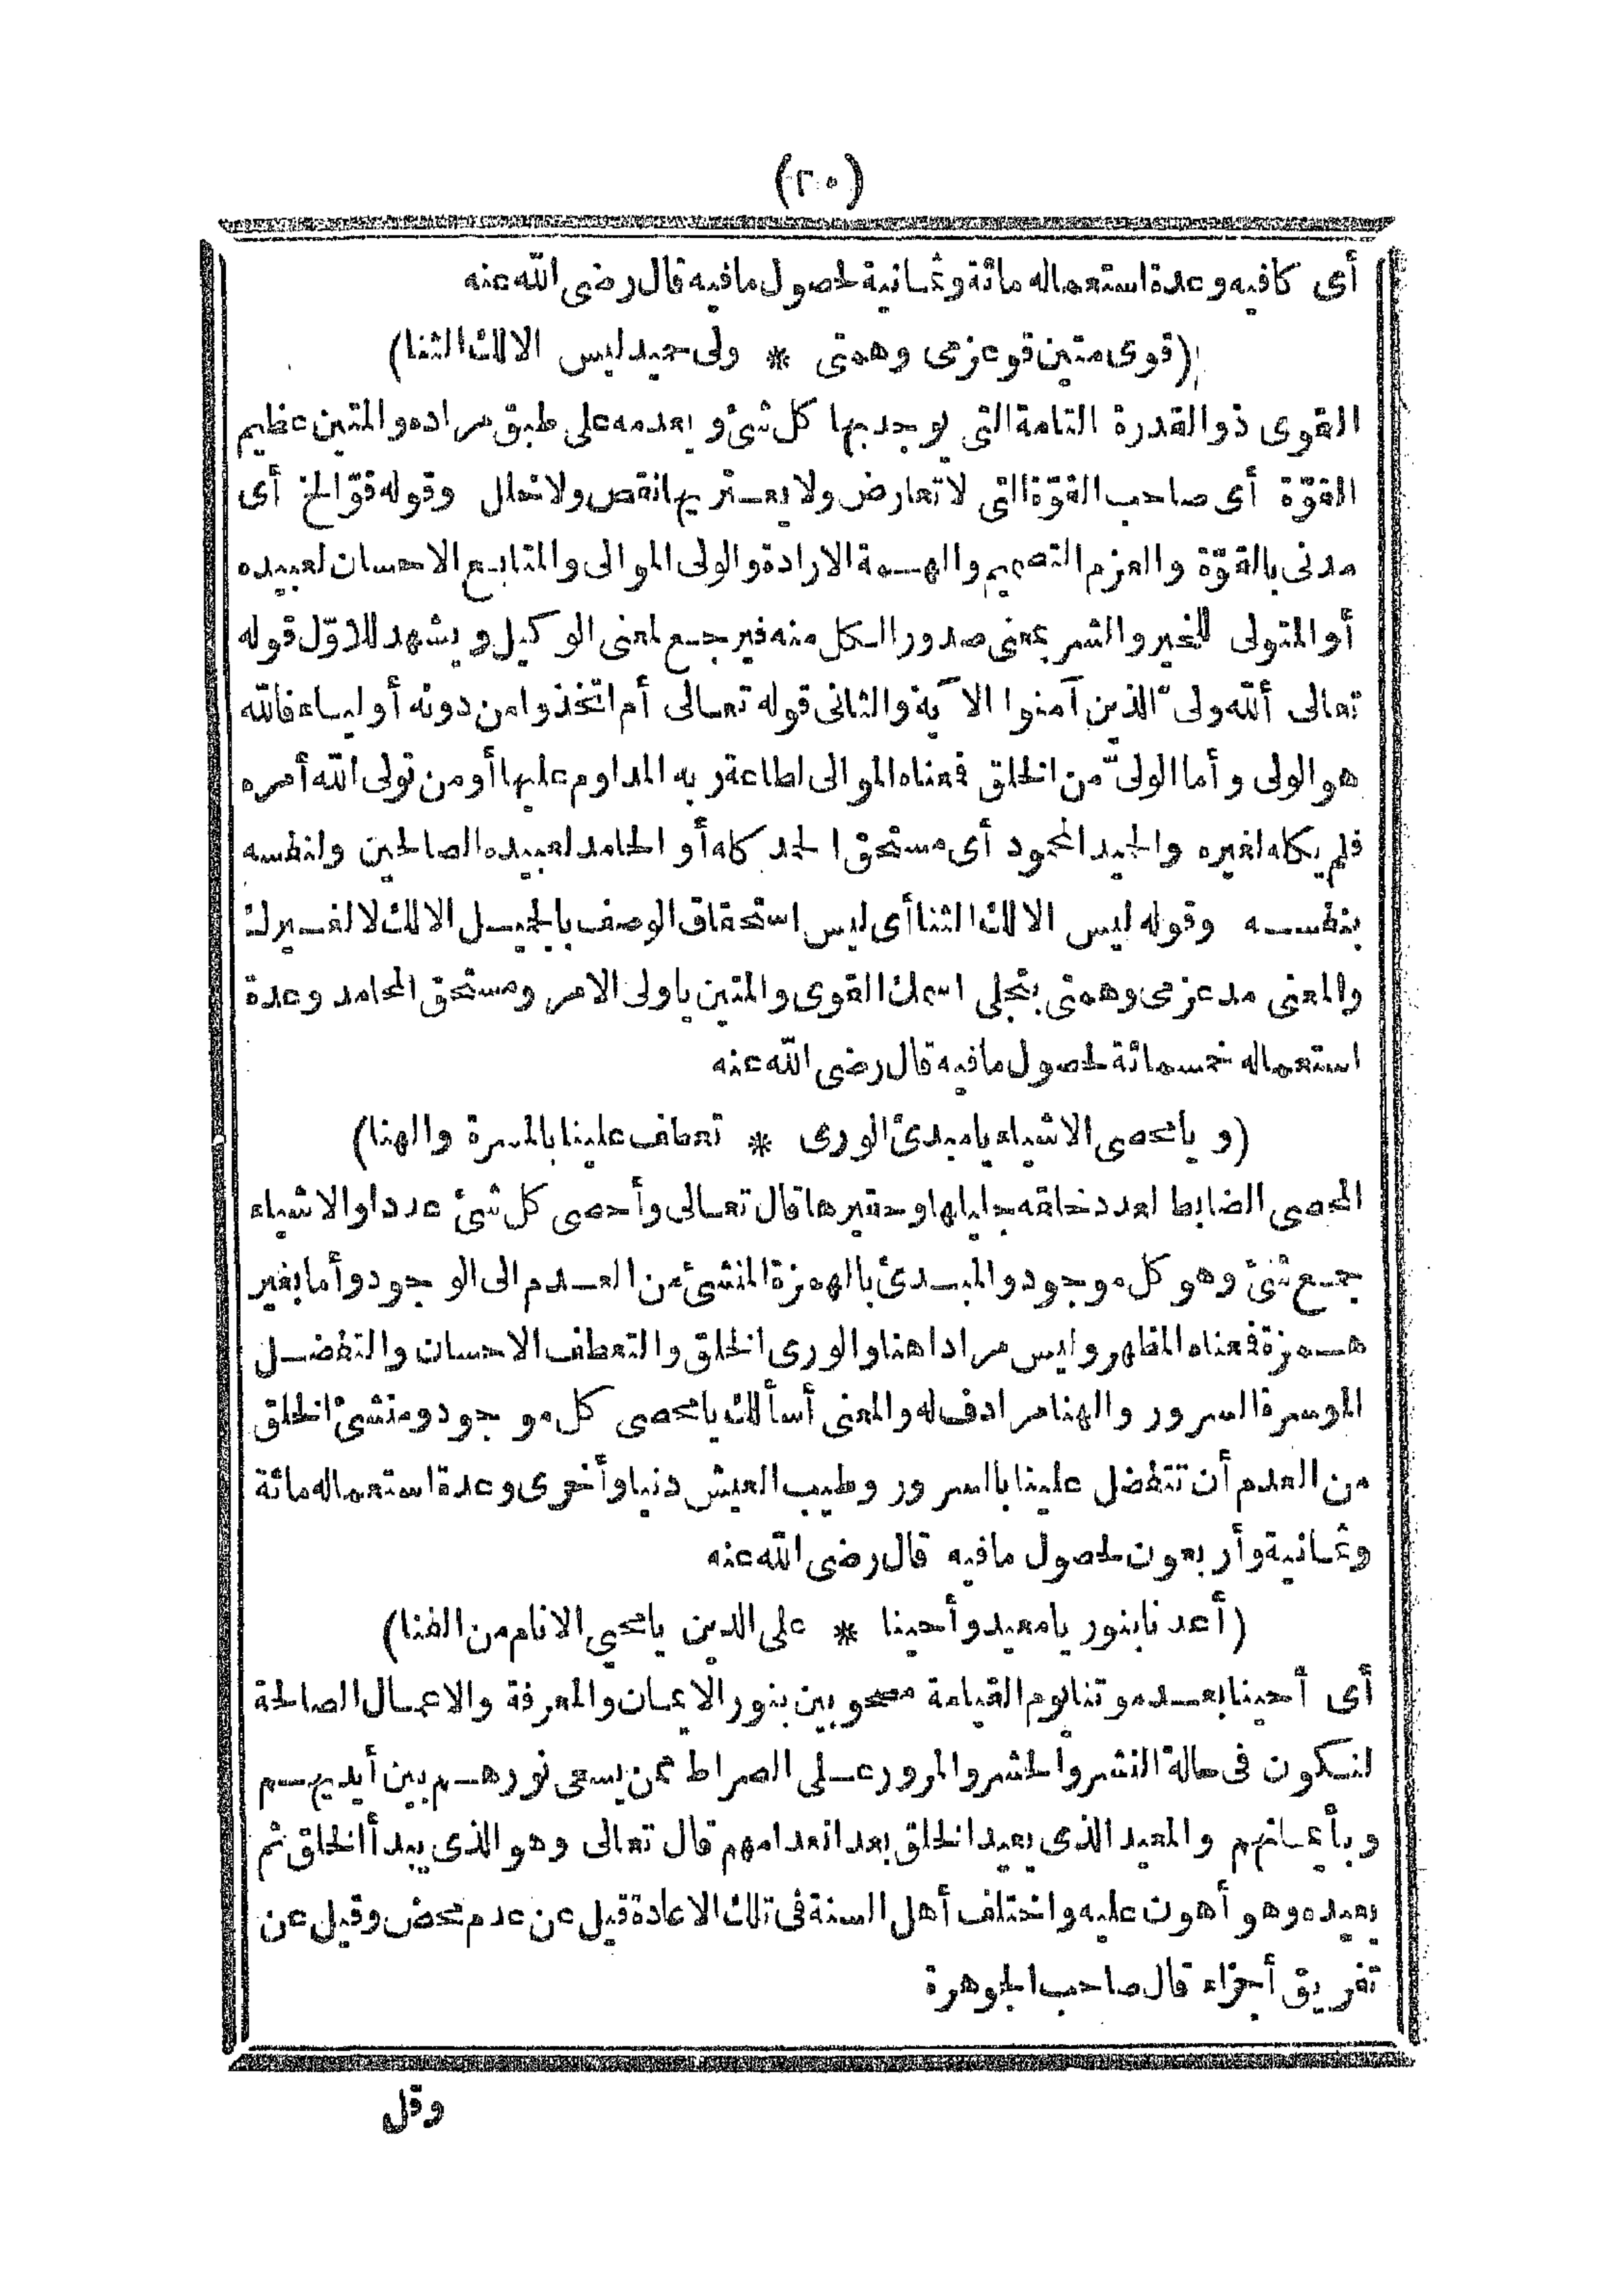 (٢٠)
أى كافيه وعدة استعماله مائة وثمانية لحصول مافيه قال رضى الله عنه
(قوى متين قو عزمى وهمتى * ولى حميد ليس الا لك الثنا)
القوى ذو القدرة التامة التى يوجد بها كل شئ ويعدمه على طبق مراده والمتين عظيم
القوّة أى صاحب القوّة التى لا تعارض ولا يعتريها نقص ولا خلل وقوله قوّ الخ أى
مدنى بالقوّة والعزم التصميم والهمة الارادة والولى الموالى والمتابع الاحسان لعبيده
أو المتولى للخير والشر بمعنى صدور الكل منه فيرجع لمعنى الوكيل ويشهد للاوّل قوله
تعالى ألله ولىّ الذين آمنوا الآية والثانى قوله تعالى أم اتخذوا من دونه أولياء فالله
هو الولى وأما الولىّ من الخلق فمعناه الموالى لطاعة ربه المداوم عليها أو من تولى الله أمره
فلم يكله لغيره والحميد المحمود أى مستحق الحمد كله أو الحامد لعبيده الصالحين ولنفسه
بنفسه وقوله ليس الا لك الثنا أى ليس استحقاق الوصف بالجميل الا لك لا لغيرك
والمعنى مد عزمى وهمتى بتجلى اسمك القوى والمتين ياولى الامر ومستحق المحامد وعدة
استعماله خمسمائة لحصول مافيه قال رضى الله عنه
(ويا محصى الاشياء يا مبدئ الورى * تعطف علينا بالمسرة والهنا)
المحصى الضابط لعدد خلقه جليلها وحقيرها قال تعالى وأحصى كل شئ عددا والاشياء
جمع شئ وهو كل موجود والمبدئ بالهمزة المنشئ من العدم الى الوجود وأما بغير
همزة فمعناه المظهر وليس مرادا هنا والورى الخلق والتعطف الاحسان والتفضل
الموسرة السرور والهنا مرادف له والمعنى أسألك يا محصى كل موجود ومنشئ الخلق
من العدم أن تتفضل علينا بالسرور وطيب العيش دنيا وأخرى وعدة استعماله مائة
وثمانية وأربعون لحصول مافيه قال رضى الله عنه
(أعدنا بنور يا معيد وأحينا * على الدين يا محيى الانام من الفنا)
أى أحينا بعد موتنا يوم القيامة مصحوبين بنور الايمان والمعرفة والاعمال الصالحة
لنكون فى حالة النشر والحشر والمرور على الصراط ممن يسعى نورهم بين أيديهم
وبأيمانهم والمعيد الذى يعيد الخلق بعد انعدامهم قال تعالى وهو الذى يبدأ الخلق ثم
يعيده وهو أهون عليه واختلف أهل السنة فى تلك الاعادة قيل عن عدم محض وقيل عن
تفريق أجزاء قال صاحب الجوهرة
وقل